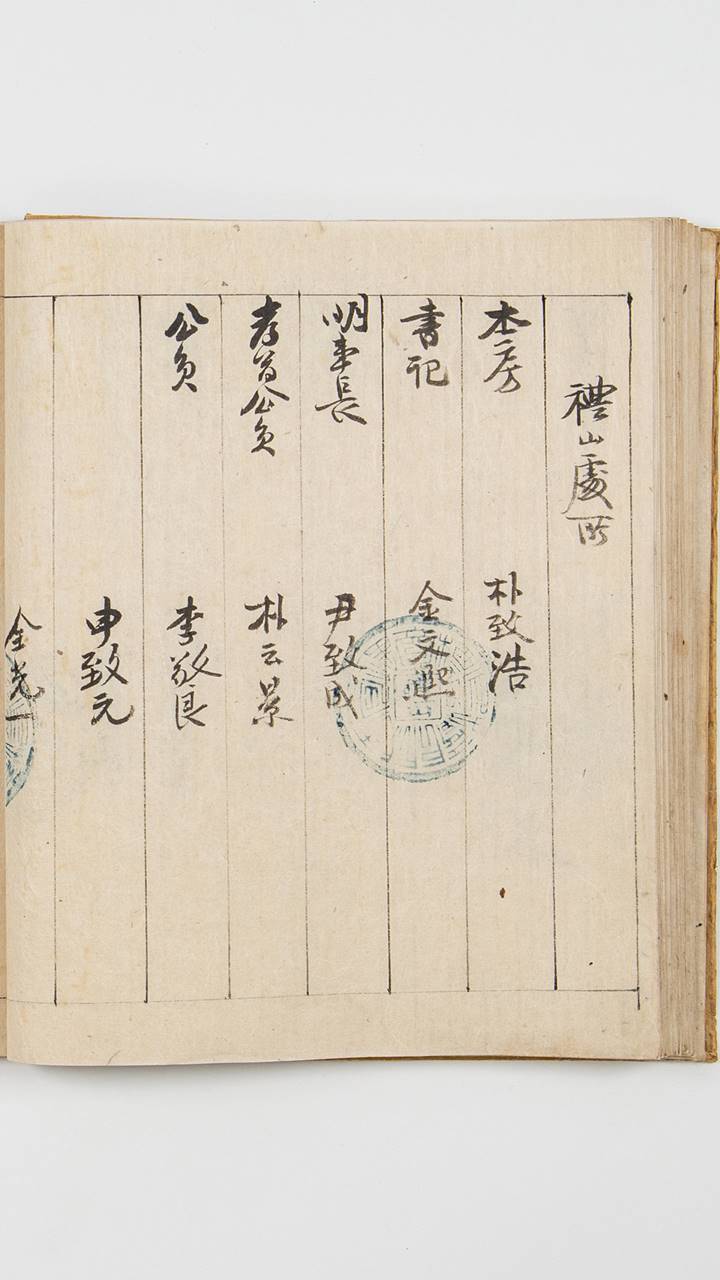 禮山處所
本房 朴致浩
書記 金文熙
明事長 尹致成
孝首公員 朴云景
公員 李敬良
申致元
金光一